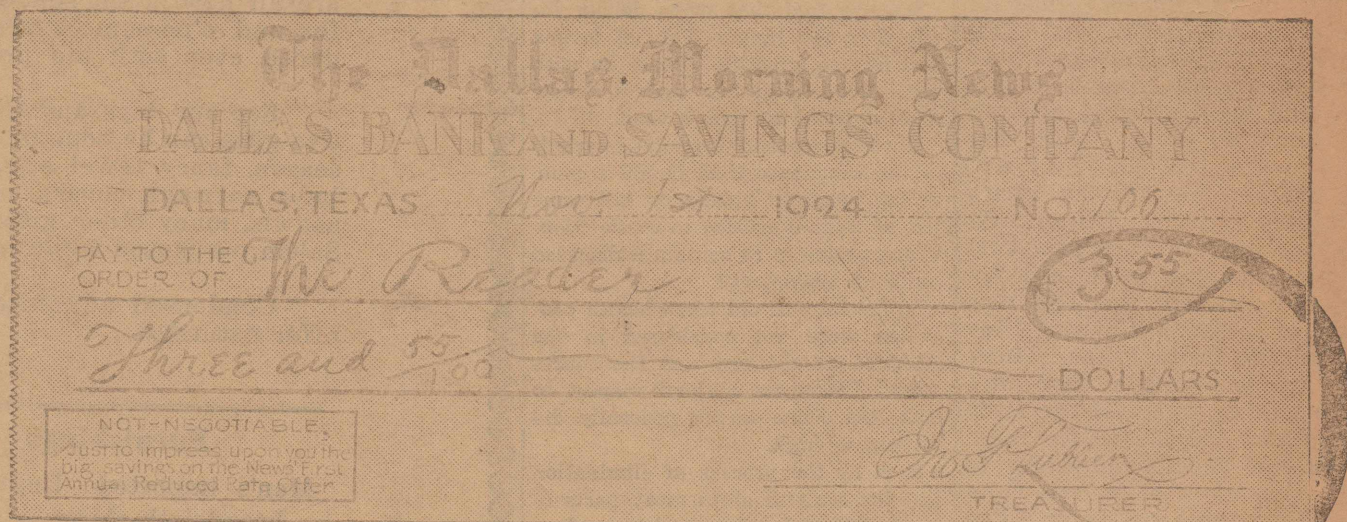 The Dallas Morning News
DALLAS BANK AND SAVINGS COMPANY
DALLAS, TEXAS Nov. 1st 1924 NO. 106
PAY TO THE
ORDER OF The Reader $3.55
Three and 55/100 DOLLARS
NOT-NEGOTIABLE,
Just to impress upon you the
big savings on the News' First
Annual Reduced Rate Offer
Jno
TREASURER